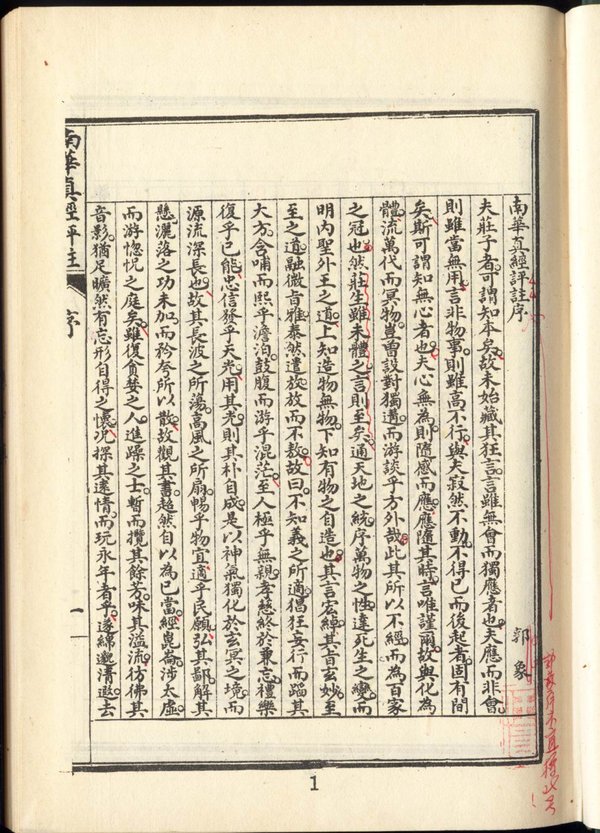 南華真經評註序
郭象
夫莊子者可謂知本矣故未始藏其狂言言雖無會而獨應者也夫應而非會
則雖當無用言非物事則雖高不行與夫寂然不動不得已而後起者固有間
矣斯可謂知無心者也夫心無為則隨感而應應隨其時言唯謹爾故與化為
體流萬代而冥物豈曾設對獨遘而游談乎方外哉此其所以不經而為百家
之冠也然莊生雖未體之言則至矣通天地之統序萬物之性達死生之變而
明內聖外王之道上知造物無物下知有物之自造也其言宏綽其旨玄妙至
至之道融微旨雅泰然遣放放而不敖故曰不知義之所適猖狂妄行而蹈其
大方含哺而熙乎澹泊鼓腹而游乎混茫至人極乎無親孝慈終於兼忘禮樂
復乎已能忠信發乎天光用其光則其朴自成是以神氣獨化於玄冥之境而
源流深長也故其長波之所蕩高風之所扇暢乎物宜適乎民願弘其鄙解其
懸灑落之功未加而矜夸所以散故觀其書超然自以為已當經崑崙涉太虛
而游惚怳之庭矣雖復貪婪之人進躁之士暫而攬其餘芳味其溢流彷佛其
音影猶足曠然有忘形自得之懷况探其遠情而玩永年者乎遂綿邈清遐去
南華真經評註
序
一
1